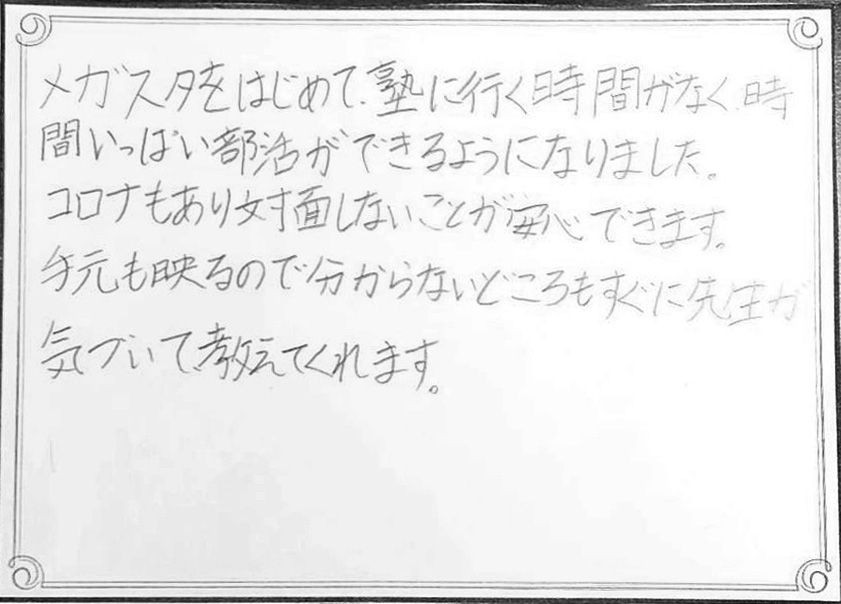 メガスタをはじめて、塾に行く時間がなく、時
間いっぱい部活ができるようになりました。
コロナもあり対面しないことが安心できます。
手元も映るので分からないどころもすぐに先生が
気づいて、教えてくれます。